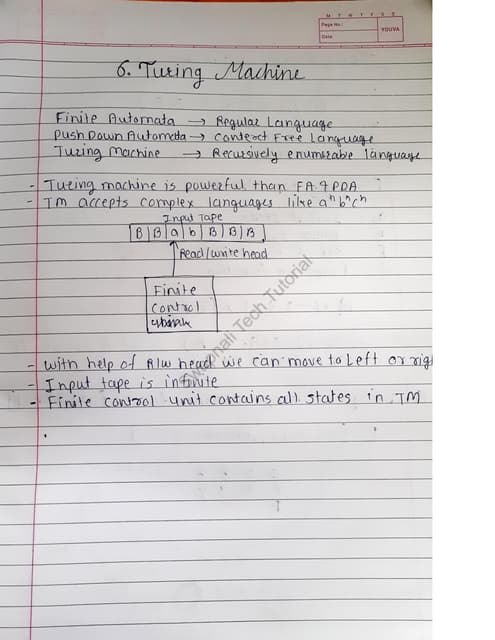 M T W T F S S
Page No.:
Date:
YOUVA
6. Turing Machine
Finite Automata → Regular Language
Push Down Automata → Context Free Language
Turing Machine → Recursively enumerable language
- Turing machine is powerful than FA & PDA
- TM accepts complex languages like aⁿbⁿcⁿ
Input Tape
B B a b B B B
Read/write head
Finite
control
- With help of R/W head we can move to Left or rig
- Input tape is infinite
- Finite control unit contains all states in TM
Tech Tutorial